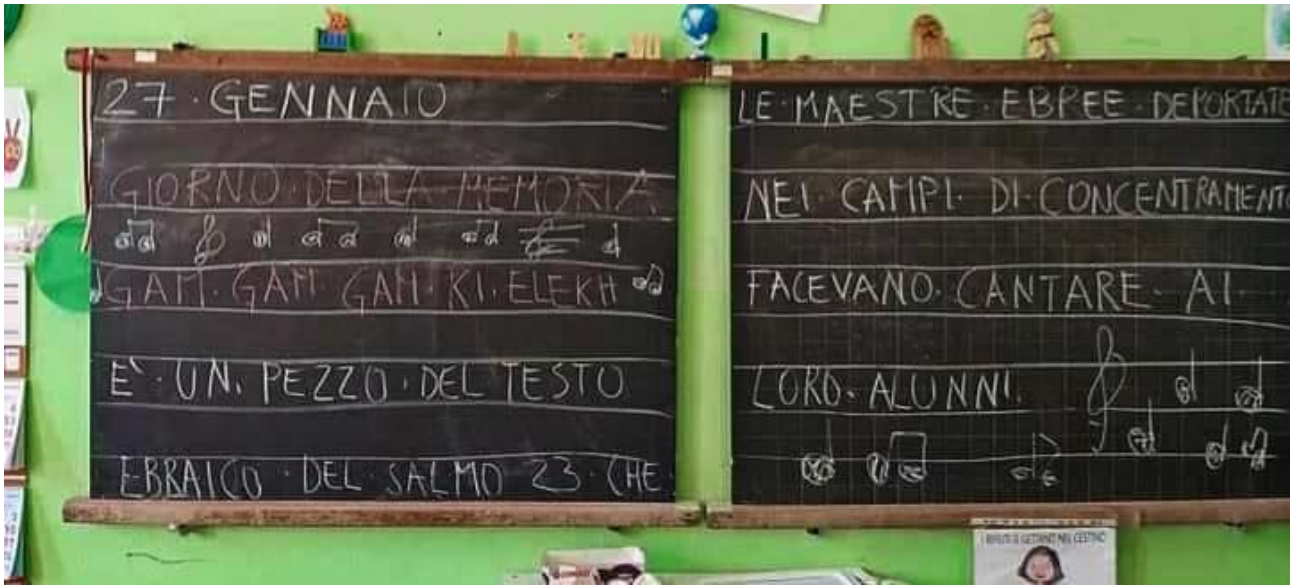 27 · GENNAIO
GIORNO · DELLA · MEMORIA
GAM · GAM · GAM · KI · ELEKH
E' · UN · PEZZO · DEL · TESTO
EBRAICO · DEL · SALMO · 23 · CHE ·
LE · MAESTRE · EBREE · DEPORTATE
NEI · CAMPI · DI · CONCENTRAMENTO
FACEVANO · CANTARE · AI ·
LORO · ALUNNI ·
I RIFIUTI SI GETTANO NEL CESTINO